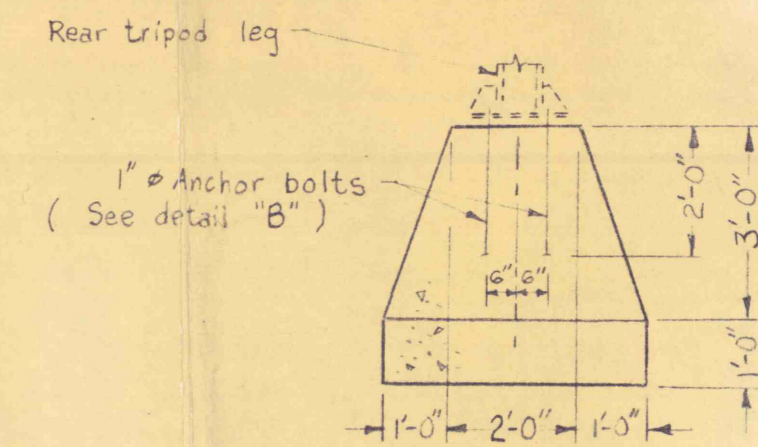 Rear tripod leg
1" ø Anchor bolts
( See detail "B" )
6" 6"
2'-0"
3'-0"
1'-0"
1'-0" 2'-0" 1'-0"